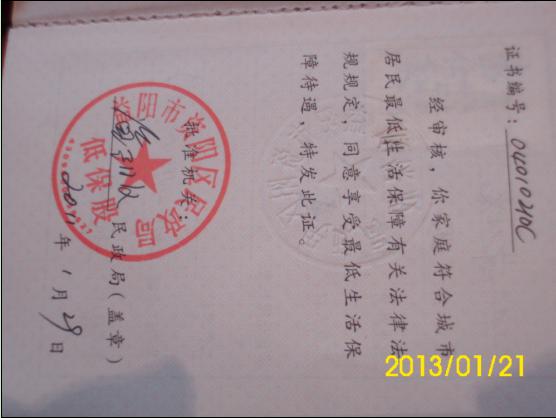 证书编号：04010210C
经审核，你家庭符合城市
居民最低生活保障有关法律法
规规定，同意享受最低生活保
障待遇，特发此证。
批准机关：
民政局（盖章）
2011年1月29日
资阳市雁江区民政局
低保股
2013/01/21